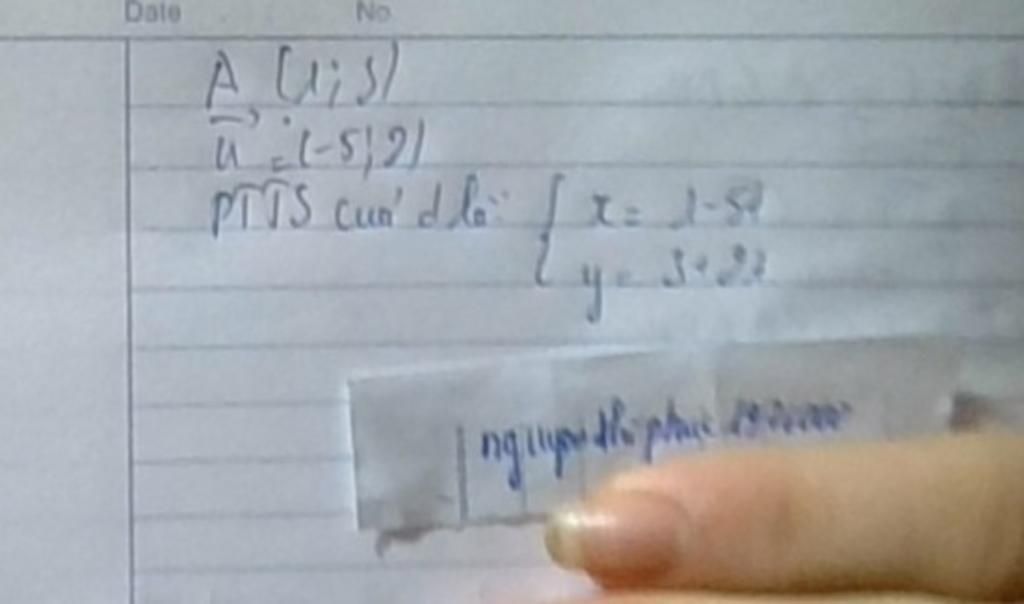 Date No
A (1; 3)
u⃗ = (-5; 2)
PTTS của d là: { x = 1-5t
y = 3+2t
nguyen thi